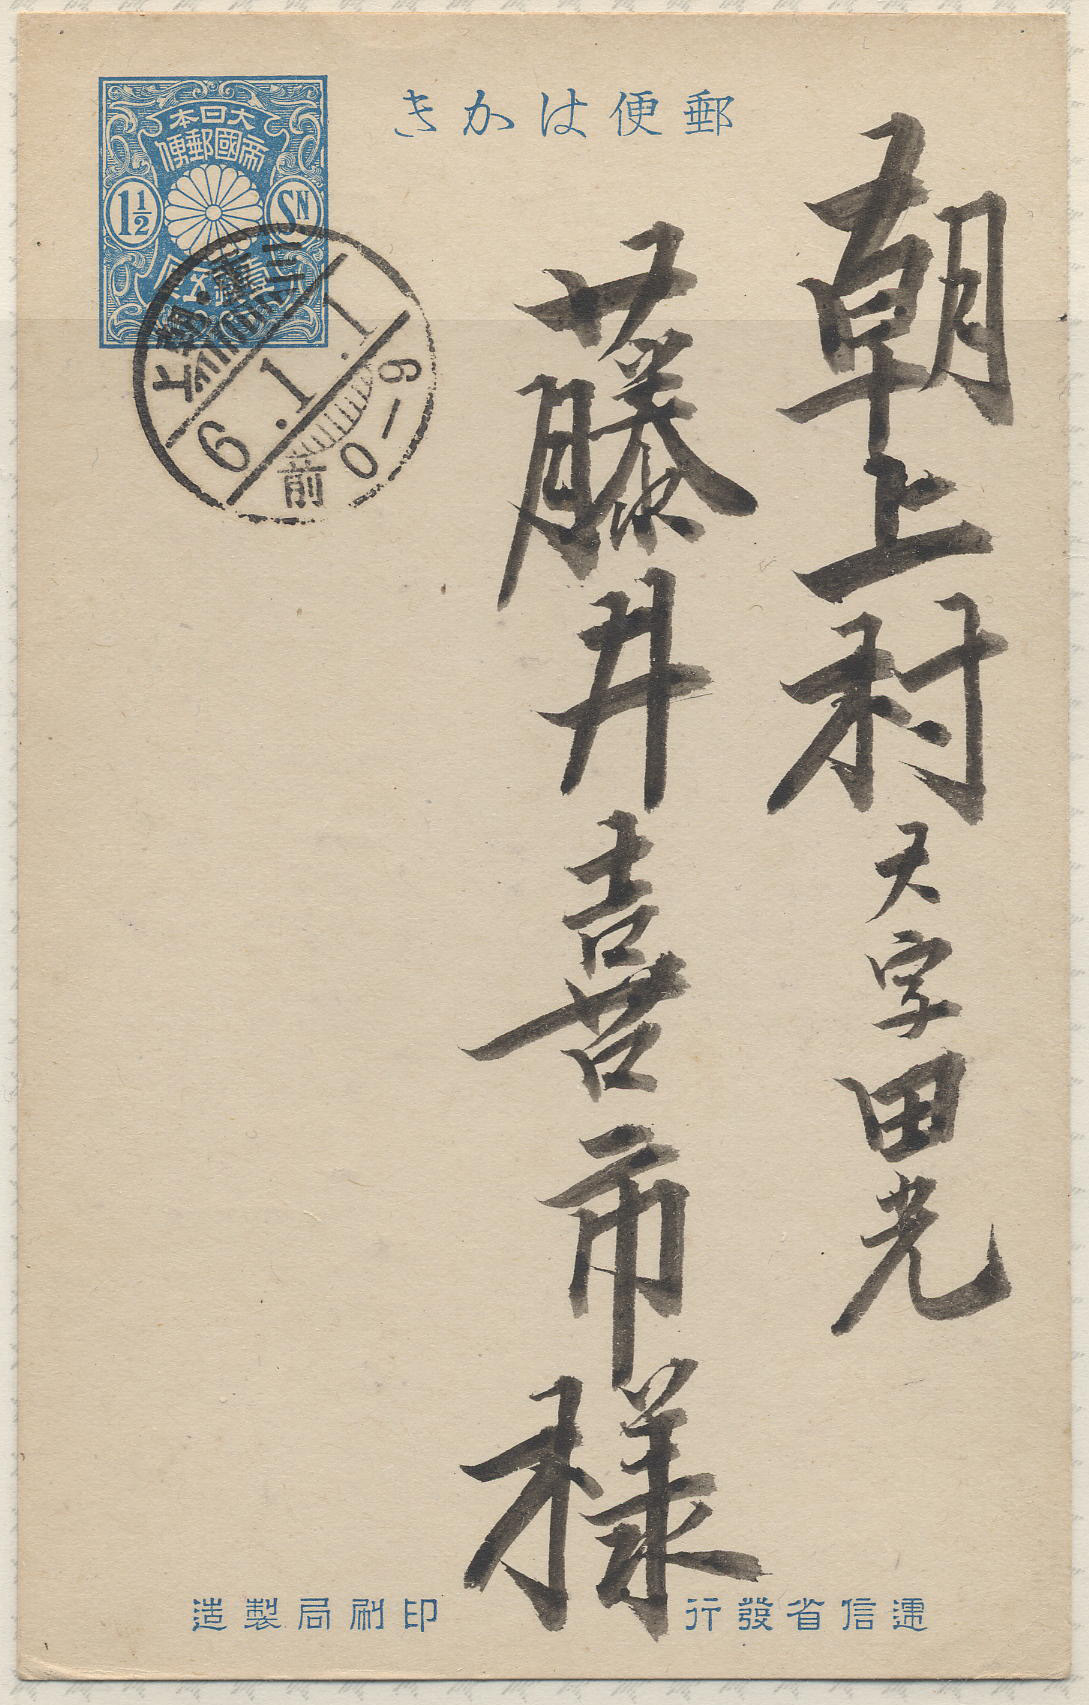 郵便はかき
大日本
帝國郵便
1½
SN
壹錢五厘
三重・朝上
6.1.1
前0-9
朝上村大字田光
藤井喜市様
逓信省發行
印刷局製造